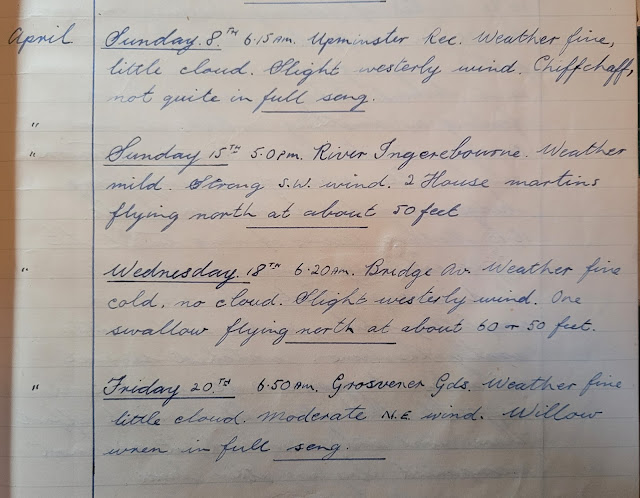 April Sunday 8.TH 6.15AM. Upminster Rec. Weather fine,
little cloud. Slight westerly wind. Chiffchaff,
not quite in full song.
"
" Sunday 15TH 5.0PM. River Ingerebourne. Weather
mild. Strong S.W. wind. 2 House martins
flying north at about 50 feet
" Wednesday 18TH 6.20AM. Bridge Av. Weather fine
cold, no cloud. Slight westerly wind. One
swallow flying north at about 60 or 50 feet.
" Friday 20.TH 6.50AM. Grosvener Gds. Weather fine
little cloud. Moderate N.E. wind. Willow
wren in full song.